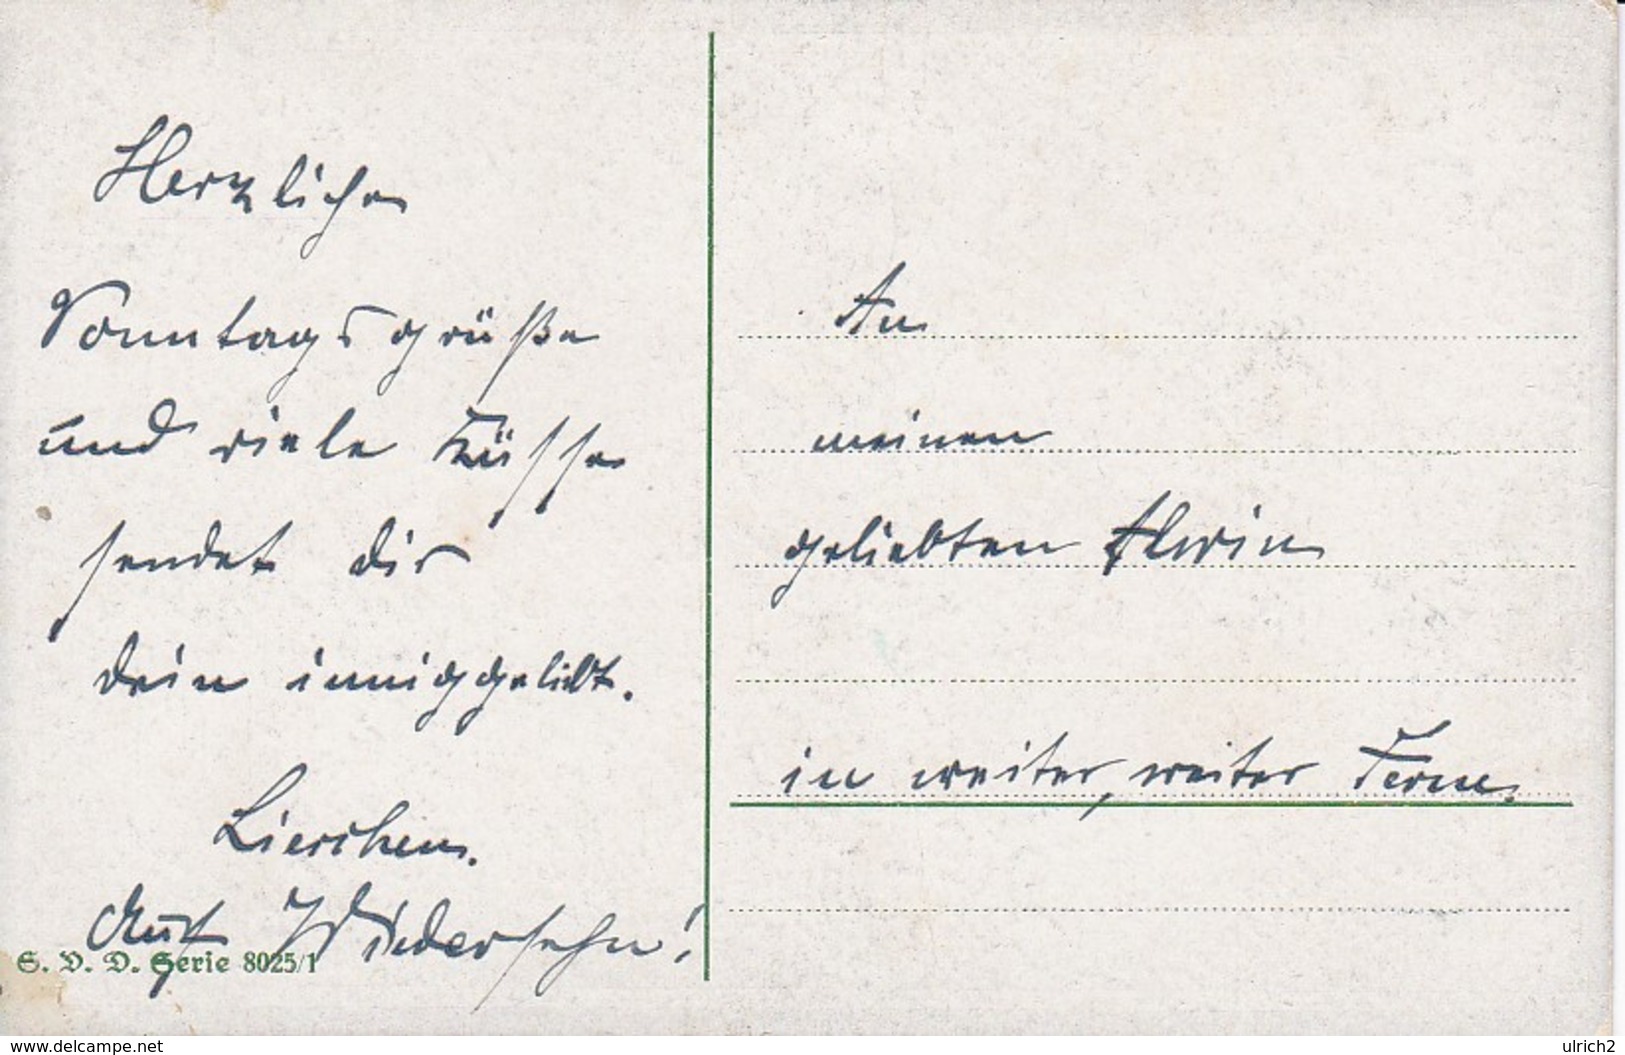 Herzliche
Sonntagsgrüße
und viele Küsse
sendet dir
dein inniggeliebt.
Lieschen.
Auf Wiedersehn!
S. V. D. Serie 8025/1
An
meinen
geliebten Alwin
in weiter, weiter Ferne.
www.delcampe.net
ulrich2